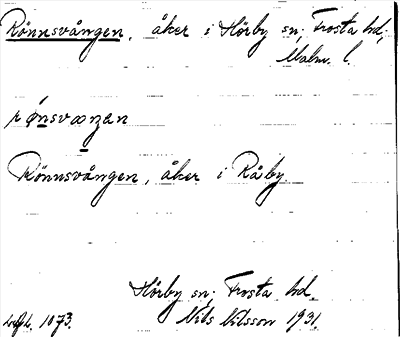 Rönnsvången, åker i Hörby sn; Frosta hd;
Malm. l.
rǿnsvaŋən
Rönnsvången, åker i Råby.
Hörby sn; Frosta hd.
1073. Nils Nilsson 1931.